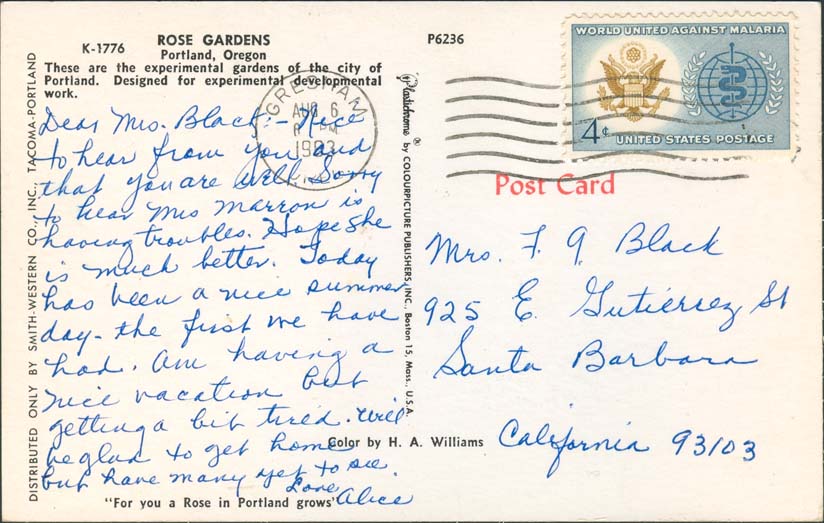 K-1776
ROSE GARDENS
Portland, Oregon
These are the experimental gardens of the city of
Portland. Designed for experimental developmental
work.
Dear Mrs. Black:- Nice
to hear from you and
that you are well. Sorry
to hear Mrs Marron is
having troubles. Hope she
is much better. Today
has been a nice summer
day - the first we have
had. Am having a
nice vacation but
getting a bit tired. Will
be glad to get home
but have many yet to see.
Love
Alice
"For you a Rose in Portland grows"
DISTRIBUTED ONLY BY SMITH-WESTERN CO., INC., TACOMA-PORTLAND
Plastichrome ® by COLOURPICTURE PUBLISHERS, INC., Boston 15, Mass., U.S.A.
Color by H. A. Williams
P6236
GRESHAM
AUG 6
PM
1963
WORLD UNITED AGAINST MALARIA
4¢
UNITED STATES POSTAGE
Post Card
Mrs. F. G. Black
925 E. Gutierrez St
Santa Barbara
California 93103